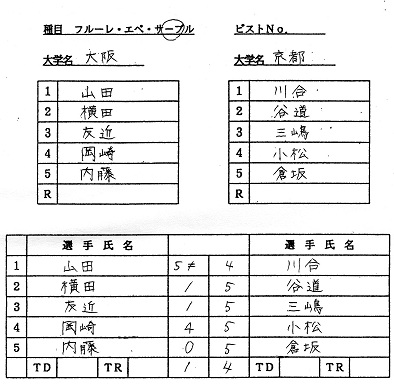 種目 フルーレ・エペ・サーブル ピストNo.
大学名 大阪 大学名 京都
1 山田 1 川合
2 横田 2 谷道
3 友近 3 三嶋
4 岡崎 4 小松
5 内藤 5 倉坂
R R
選手氏名 選手氏名
1 山田 5 ≠ 4 川合
2 横田 1 5 谷道
3 友近 1 5 三嶋
4 岡崎 4 5 小松
5 内藤 0 5 倉坂
TD TR 1 4 TD TR